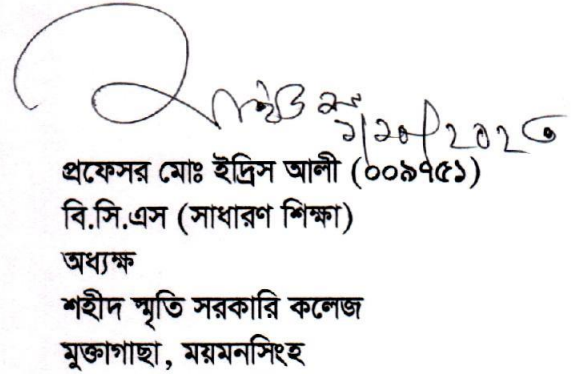 প্রফেসর মোঃ ইদ্রিস আলী (০০৯৭৫১)
বি.সি.এস (সাধারণ শিক্ষা)
অধ্যক্ষ
শহীদ স্মৃতি সরকারি কলেজ
মুক্তাগাছা, ময়মনসিংহ